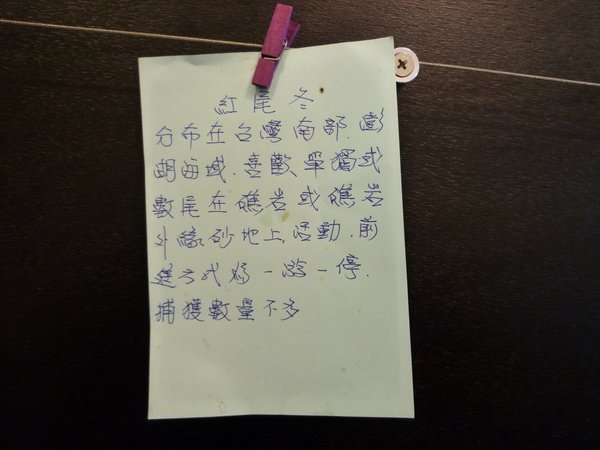 紅尾冬
分布在台灣南部.澎
湖海域.喜歡單獨或
數尾在礁岩或礁岩
外緣砂地上活動.前
進方式為一游一停.
捕獲數量不多